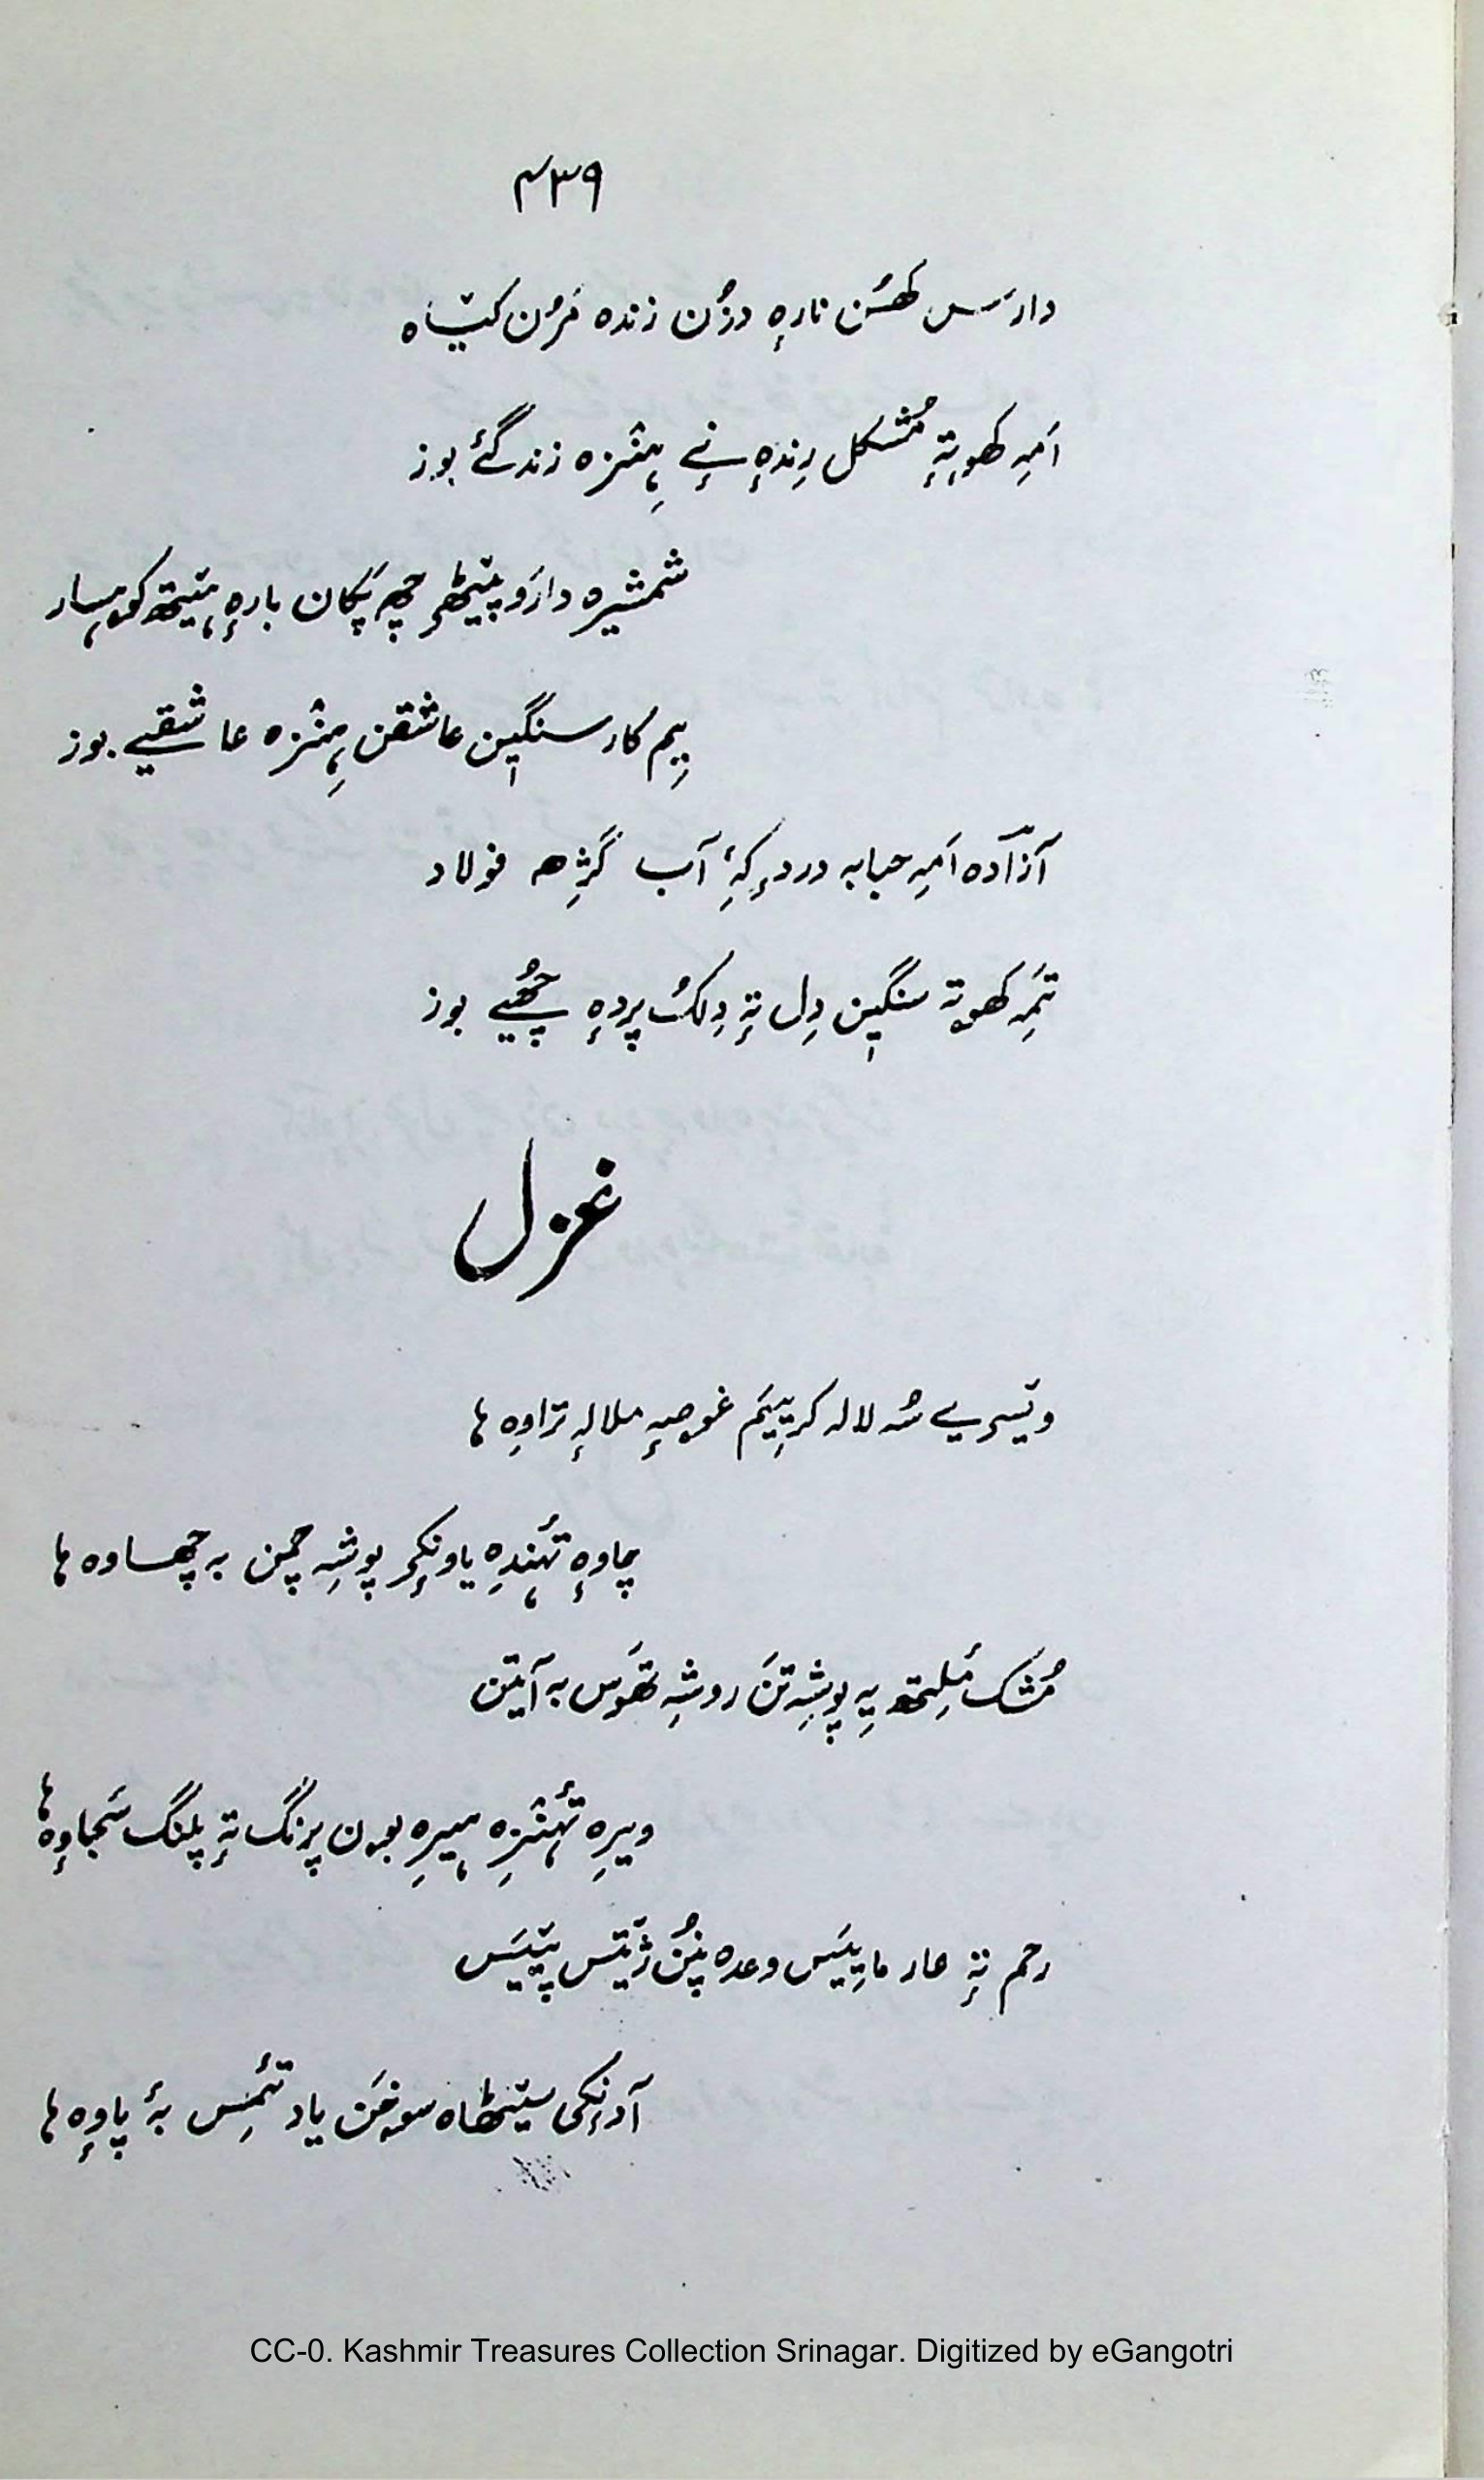 ۴۳۹
دارَس کھَسُن نارٕہ دزُن زندہ مَرُن کیٛاہ
اَمہِ کھوتہٕ مُشکل رِندٕہ نےٚ ہِنٛزہ زندگیٔ بوز
شمشیرہ دارَو پیٚٹھۍ چھِ پَکان بارٕہ ہیٚتھ کوہسار
یِم کار سنگیٖن عاشقن ہِنٛزہ عاشقیے بوز
آزادہ اَمہِ حبابہ دردٕ کہِ آب گژِھ فولاد
تَمہِ کھوتہ سنگیٖن دِل تہٕ دِلکُ پردٕہ چھُیے بوز
غزل
ویٚسۍ یے سُہ لالہ کرییم غوصہٕ ملالہٕ تراوِہ ہا
چاوٕہ تہٕندِہ یاونکۍ پوشہِ چمن بہ چھاوہ ہا
مُشک مٔلِتھ یہِ پوشہِ تَن روشہِ تھَوَس بہ آیتن
ویرِہ تہٕنٛزِہ ہیرِہ بون پرنگ تہٕ پلنگ سَجاوٕہ ہا
رحم تہٕ عار مایییَس وعدہ پنُن ژیٚتس پیٚیَس
آدنٕکی سیٚٹھاہ سوخَن یاد تٔمِس بۂ پاوٕہ ہا
CC-0. Kashmir Treasures Collection Srinagar. Digitized by eGangotri